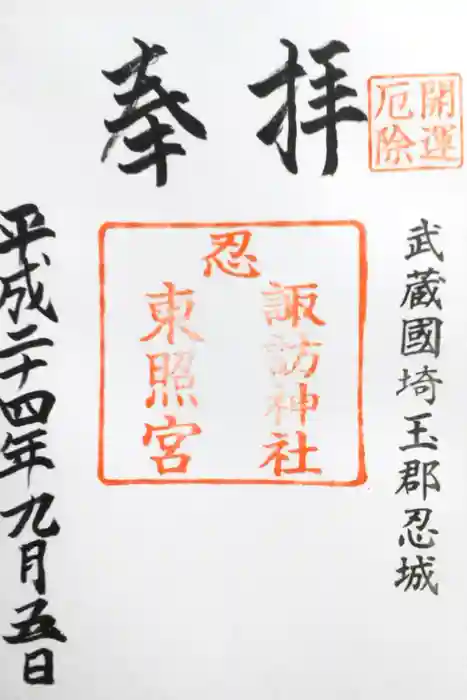 開運
厄除
武蔵國埼玉郡忍城
奉拝
忍
諏訪神社
東照宮
平成二十四年九月五日